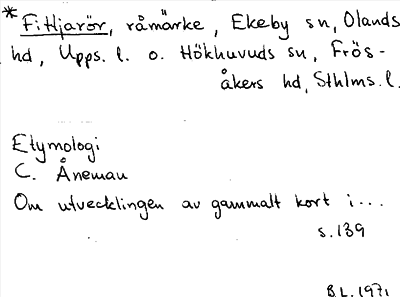 *Fitjarör, råmärke, Ekeby sn, Olands
hd, Upps. l. o. Hökhuvuds sn, Frös-
åkers hd, Sthlms. l.
Etymologi
C. Åneman
Om utvecklingen av gammalt kort i...
s. 139
B.L. 1971